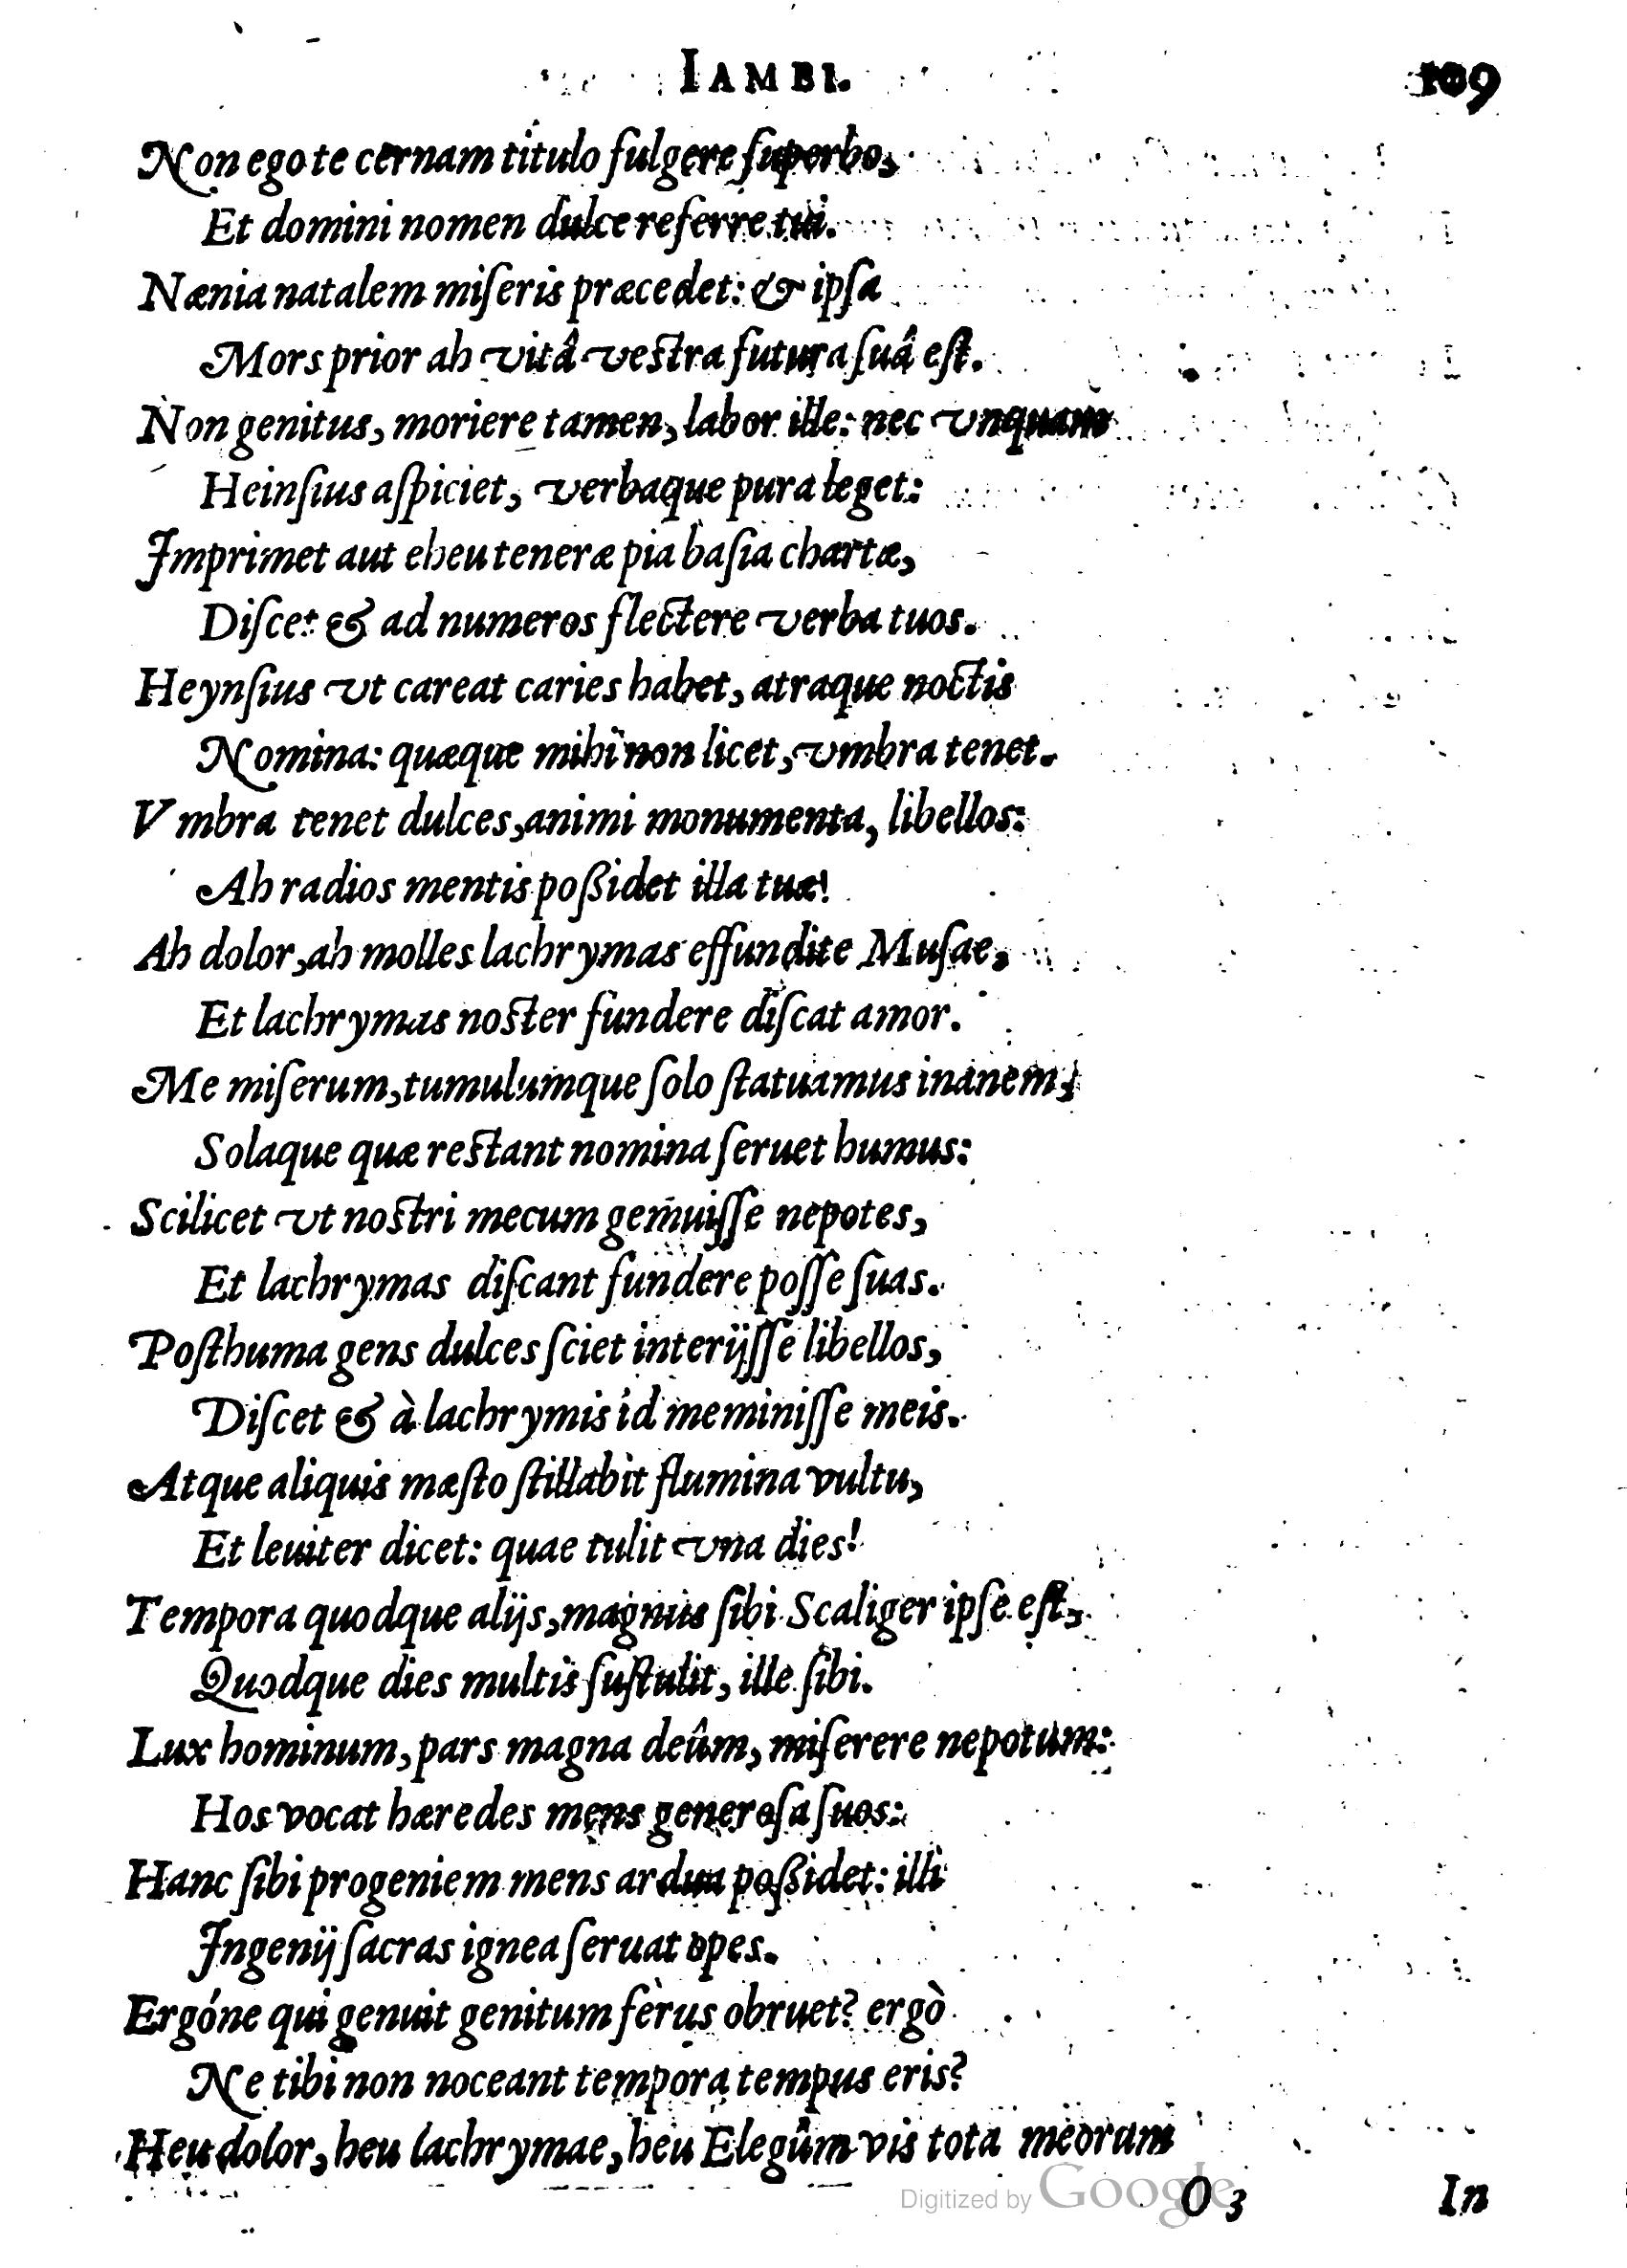 IAMBI. 109
Non ego te cernam titulo fulgere ſuperbo,
Et domini nomen dulce referre tui.
Nænia natalem miſeris præcedet: & ipſa
Mors prior ah vitâ veſtra futura ſuâ eſt.
Non genitus, moriere tamen, labor ille: nec vnquam
Heinſius aſpiciet, verbaque pura leget:
Imprimet aut eheu teneræ pia baſia chartæ,
Diſcet & ad numeros flectere verba tuos.
Heynſius vt careat caries habet, atraque noctis
Nomina: quæque mihi non licet, vmbra tenet.
Vmbra tenet dulces, animi monumenta, libellos:
Ah radios mentis poßidet illa tuæ!
Ah dolor, ah molles lachrymas effundite Muſae,
Et lachrymas noſter fundere diſcat amor.
Me miſerum, tumulumque ſolo ſtatuamus inanem:
Solaque quæ reſtant nomina ſeruet humus:
Scilicet vt noſtri mecum gemuiſſe nepotes,
Et lachrymas diſcant fundere poſſe ſuas.
Poſthuma gens dulces ſciet interijſſe libellos,
Diſcet & à lachrymis id meminiſſe meis.
Atque aliquis mæſto ſtillabit flumina vultu,
Et leuiter dicet: quae tulit vna dies!
Tempora quodque alijs, magnus ſibi Scaliger ipſe eſt,
Quodque dies multis ſuſtulit, ille ſibi.
Lux hominum, pars magna deûm, miſerere nepotum:
Hos vocat hæredes mens generoſa ſuos:
Hanc ſibi progeniem mens ardua poßidet: illi
Ingenij ſacras ignea ſeruat opes.
Ergóne qui genuit genitum ferus obruet? ergò
Ne tibi non noceant tempora tempus eris?
Heu dolor, heu lachrymae, heu Elegûm vis tota meorum
Digitized by Google
O 3 In